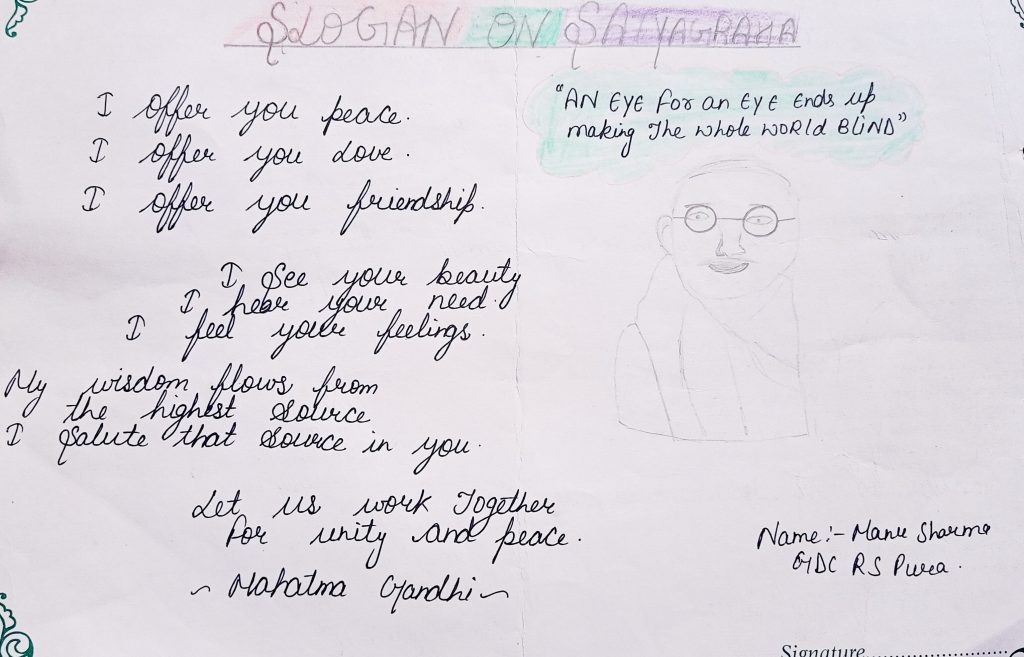 SLOGAN ON SATYAGRAHA
I offer you peace.
I offer you Love.
I offer you friendship.
I See your beauty
I hear your need.
I feel your feelings.
My wisdom flows from
the highest Source
I Salute that Source in you.
Let us work Together
For unity and peace.
~ Mahatma Gandhi ~
"AN EYE For an EYE Ends up
making The whole WORLD BLIND"
Name:- Manu Sharma
GDC RS Pura.
Signature..............................